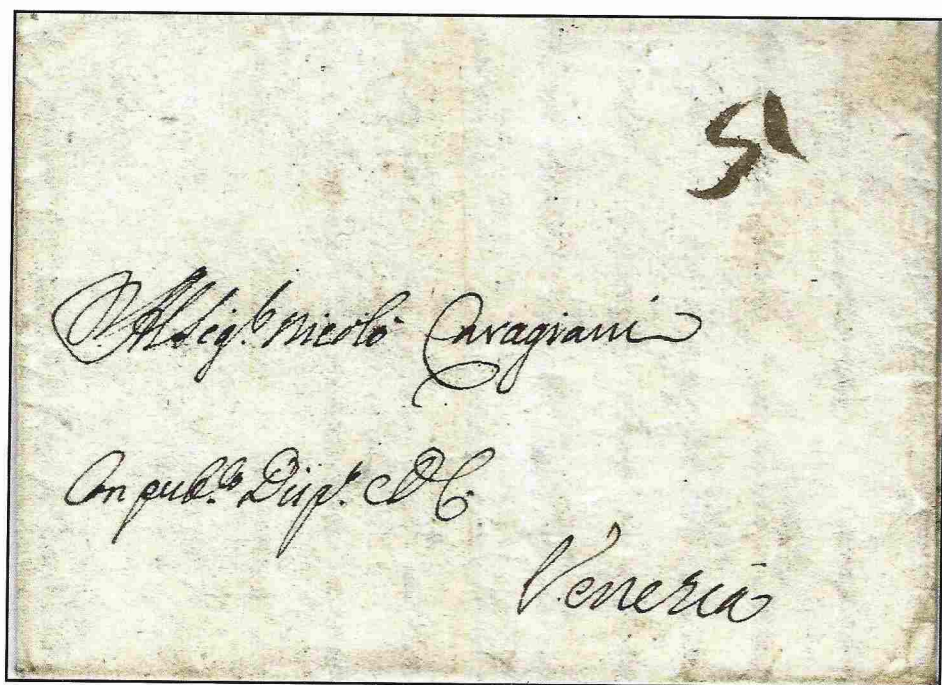 51
Al Sig.r Nicolò Caragiani
Con pub.co Disp.o
Venezia